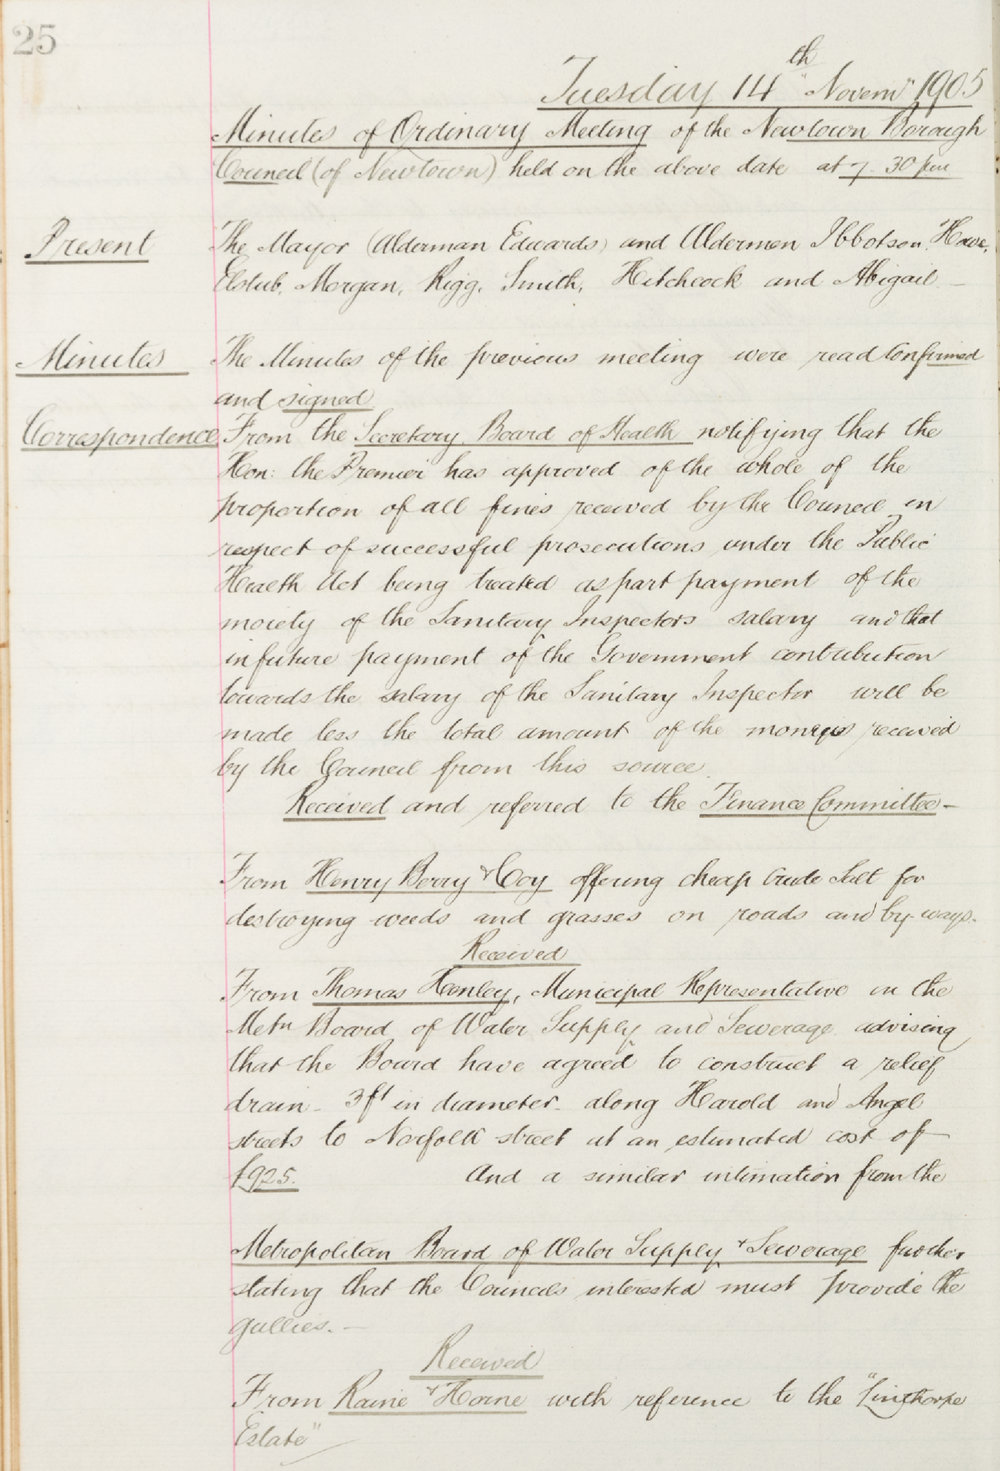 25
Tuesday 14th "Novem" 1905
Minutes of Ordinary Meeting of the Newtown Borough
Council (of Newtown) held on the above date at 7.30 pm
Present The Mayor (Alderman Edwards) and Aldermen Ibbotson, Howe,
Elstub, Morgan, Rigg, Smith, Hitchcock and Abigail —
Minutes The Minutes of the previous meeting were read Confirmed
and signed
Correspondence From the Secretary Board of Health notifying that the
Hon: the Premier has approved of the whole of the
proportion of all fines received by the Council in
respect of successful prosecutions under the Public
Health Act being treated as part payment of the
moiety of the Sanitary Inspectors salary and that
in future payment of the Government contribution
towards the salary of the Sanitary Inspector will be
made less the total amount of the moneys received
by the Council from this source.
Received and referred to the Finance Committee —
From Henry Berry & Coy offering cheap Crude Salt for
destroying weeds and grasses on roads and by-ways.
Received
From Thomas Henley, Municipal Representative in the
Metn Board of Water Supply and Sewerage advising
that the Board have agreed to construct a relief
drain - 3ft in diameter - along Harold and Angel
streets to Norfolk street at an estimated cost of
£925. And a similar intimation from the
Metropolitan Board of Water Supply & Sewerage further
stating that the Councils interested must provide the
gullies. —
Received
From Raine & Horne with reference to the "Linthorpe
Estate"